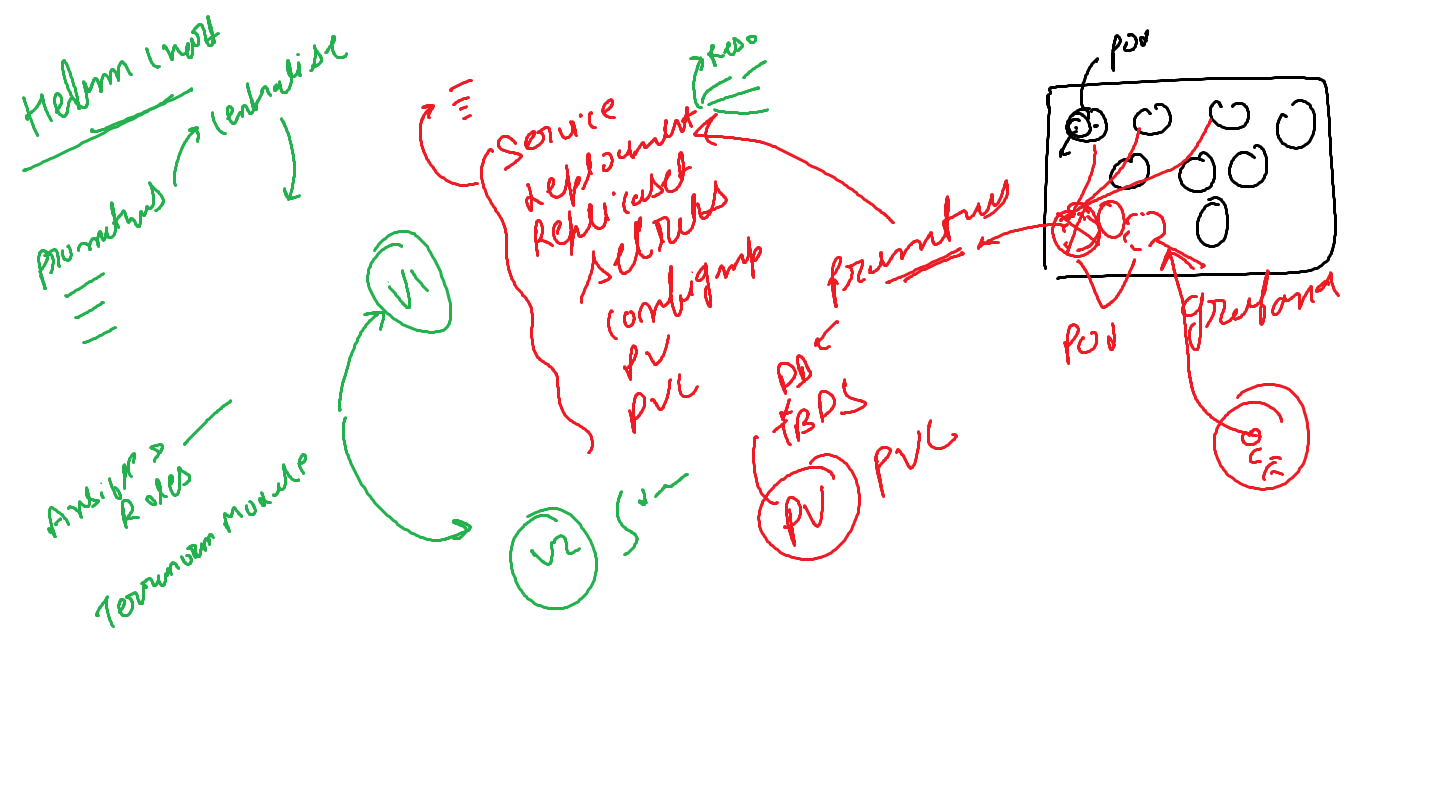 Helm Chart
Centralise
Promethus
Ansible
Roles
Terraform Module
V1
V2
Reso
Service
Deployment
Replicaset
Secrets
Configmp
PV
PVC
Prometus
DB
TBDS
PV
PVC
POD
POD
Grafana